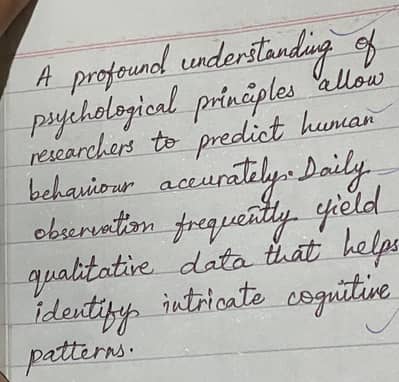 A profound understanding of
psychological principles allow
researchers to predict human
behaviour accurately. Daily
observation frequently yield
qualitative data that helps
identify intricate cognitive
patterns.